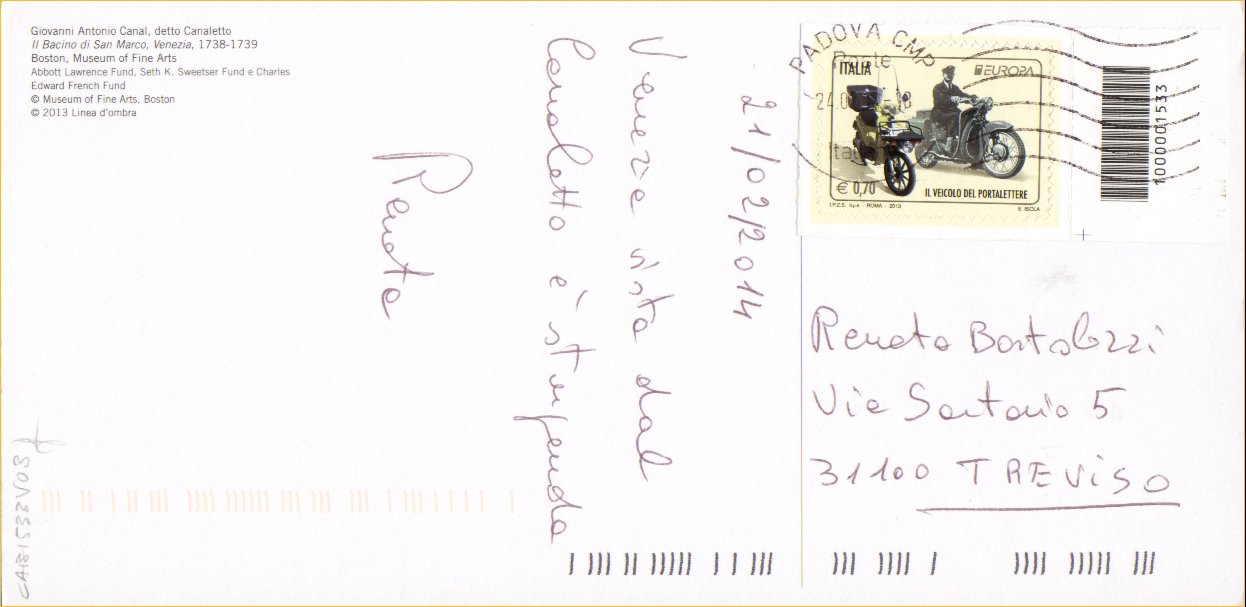 Giovanni Antonio Canal, detto Canaletto
Il Bacino di San Marco, Venezia, 1738-1739
Boston, Museum of Fine Arts
Abbott Lawrence Fund, Seth K. Sweetser Fund e Charles
Edward French Fund
© Museum of Fine Arts, Boston
© 2013 Linea d'ombra
21/02/2014
Venezia vista dal
Canaletto è stupenda
Renata
PADOVA CMP
Poste
ITALIA
EUROPA
€ 0,70
IL VEICOLO DEL PORTALETTERE
I.P.Z.S. S.p.A. - ROMA - 2013
S. ISOLA
1000001533
Renata Bortolozzi
Via Santorio 5
31100 TREVISO